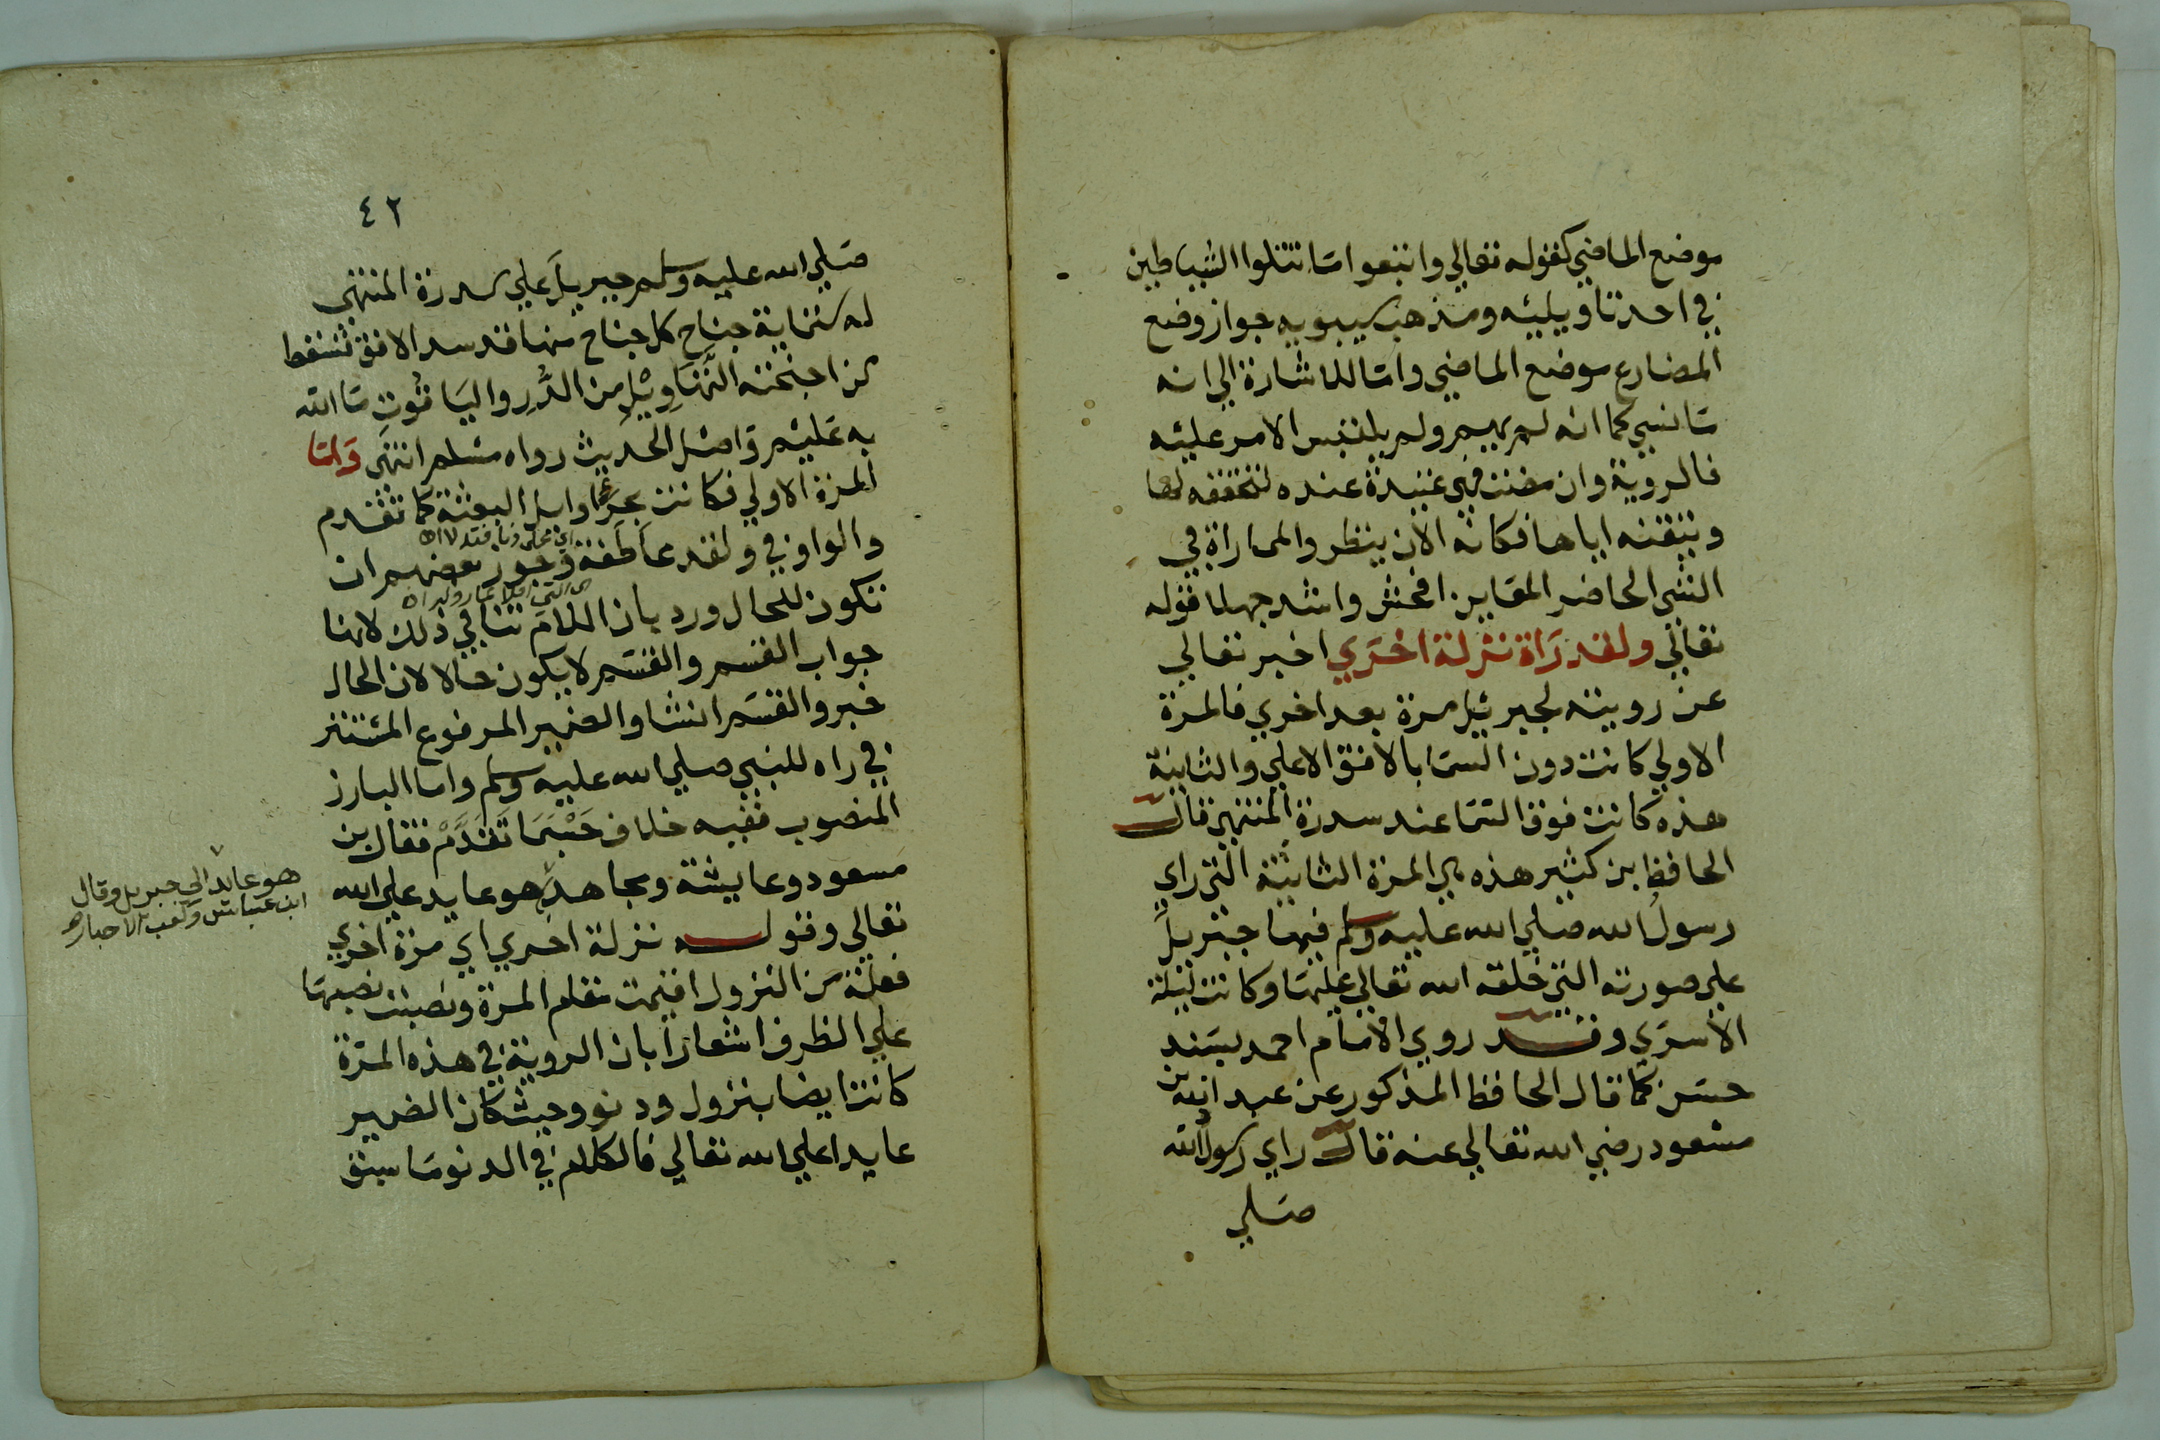 موضع الماضي كقوله تعالي واتبعوا ما تتلوا الشياطين
في احد تاويليه ومذهب سيبويه جواز وضع
المضارع موضع الماضي واما للاشارة الي انه
ما نسي كما انه لم يهم ولم يلتبس الامر عليه
فالروية وان مضت فهي عتيدة عنده لتحققه لها
وتيقنه اياها فكانه الان ينظر والمماراة في
الشي الحاضر المعاين افحش واشد جهلا قوله
تعالي ولقد راه نزلة اخري اخبر تعالي
عن رويته لجبريل مرة بعد اخري فالمرة
الاولي كانت دون السما بالافق الاعلي والثانية
هذه كانت فوق السما عند سدرة المنتهي قال
الحافظ بن كثير هذه هي المرة الثانية التي راي
رسول الله صلي الله عليه وسلم فيها جبريل
علي صورته التي خلقه الله تعالي عليها وكانت ليلة
الاسري وقد روي الامام احمد بسند
حسن كما قال الحافظ المذكور عن عبد الله بن
مسعود رضي الله تعالي عنه قال راي رسول الله
صلي
٤٢
صلي الله عليه وسلم جبريل علي سدرة المنتهي
له ستماية جناح كل جناح منها قد سد الافق تسقط
من اجنحته التهاويل من الدر والياقوت ما الله
به عليم واصل الحديث رواه مسلم انتهي واما
المرة الاولي فكانت بحرا اوايل البعثة كما تقدم
والواو في ولقد عاطفة وجوز بعضهم ان
تكون للحال ورد بان اللام تنافي ذلك لانها
جواب القسم والقسم لا يكون حالا لان الحال
خبر والقسم انشا والضمير المرفوع المستتر
في راه للنبي صلي الله عليه وسلم واما البارز
المنصوب ففيه خلاف حسبما تقدم فقال بن
مسعود وعايشة ومجاهد هو عايد علي الله
هو عايد الي جبريل وقال
ابن عباس وكعب الاحبار
تعالي وقوله نزلة اخري اي مرة اخري
فعلة من النزول اقيمت مقام المرة ونصبت نصبها
علي الظرف اشعارا بان الروية في هذه المرة
كانت ايضا بنزول ودنو وحيث كان الضمير
عايدا علي الله تعالي فالكلام في الدنو ما سبق